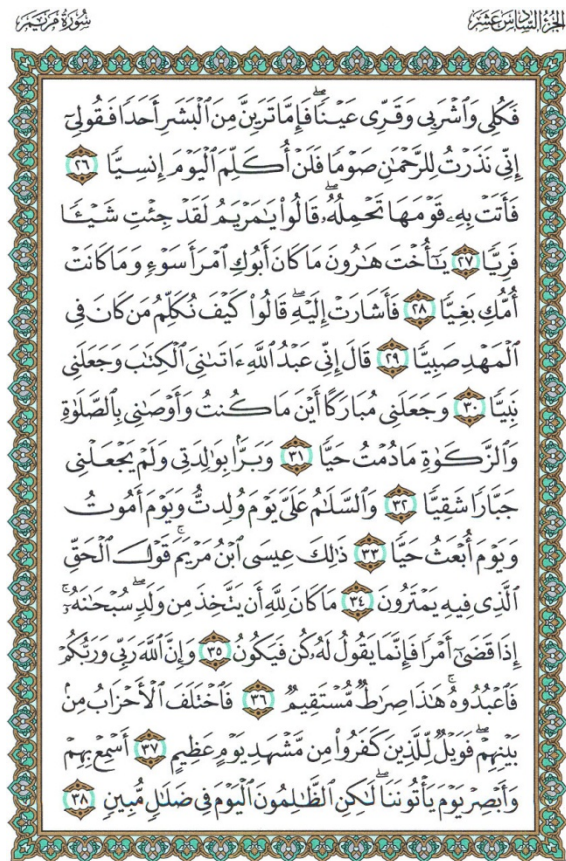 الجُزْءُ السَّادِسَ عَشَرَ
سُورَةُ مَرْيَمَ
فَكُلِى وَٱشْرَبِى وَقَرِّى عَيْنًاۖ فَإِمَّا تَرَيِنَّ مِنَ ٱلْبَشَرِ أَحَدًا فَقُولِىٓ
إِنِّى نَذَرْتُ لِلرَّحْمَٰنِ صَوْمًا فَلَنْ أُكَلِّمَ ٱلْيَوْمَ إِنسِيًّا ٢٦
فَأَتَتْ بِهِۦ قَوْمَهَا تَحْمِلُهُۥۖ قَالُوا۟ يَٰمَرْيَمُ لَقَدْ جِئْتِ شَيْـًٔا
فَرِيًّا ٢٧ يَٰٓأُخْتَ هَٰرُونَ مَا كَانَ أَبُوكِ ٱمْرَأَ سَوْءٍ وَمَا كَانَتْ
أُمُّكِ بَغِيًّا ٢٨ فَأَشَارَتْ إِلَيْهِۖ قَالُوا۟ كَيْفَ نُكَلِّمُ مَن كَانَ فِى
ٱلْمَهْدِ صَبِيًّا ٢٩ قَالَ إِنِّى عَبْدُ ٱللَّهِ ءَاتَىٰنِىَ ٱلْكِتَٰبَ وَجَعَلَنِى
نَبِيًّا ٣٠ وَجَعَلَنِى مُبَارَكًا أَيْنَ مَا كُنتُ وَأَوْصَٰنِى بِٱلصَّلَوٰةِ
وَٱلزَّكَوٰةِ مَا دُمْتُ حَيًّا ٣١ وَبَرًّۢا بِوَٰلِدَتِى وَلَمْ يَجْعَلْنِى
جَبَّارًا شَقِيًّا ٣٢ وَٱلسَّلَٰمُ عَلَىَّ يَوْمَ وُلِدتُّ وَيَوْمَ أَمُوتُ
وَيَوْمَ أُبْعَثُ حَيًّا ٣٣ ذَٰلِكَ عِيسَى ٱبْنُ مَرْيَمَۚ قَوْلَ ٱلْحَقِّ
ٱلَّذِى فِيهِ يَمْتَرُونَ ٣٤ مَا كَانَ لِلَّهِ أَن يَتَّخِذَ مِن وَلَدٍۖ سُبْحَٰنَهُۥٓۚ
إِذَا قَضَىٰٓ أَمْرًا فَإِنَّمَا يَقُولُ لَهُۥ كُن فَيَكُونُ ٣٥ وَإِنَّ ٱللَّهَ رَبِّى وَرَبُّكُمْ
فَٱعْبُدُوهُۚ هَٰذَا صِرَٰطٌ مُّسْتَقِيمٌ ٣٦ فَٱخْتَلَفَ ٱلْأَحْزَابُ مِنۢ
بَيْنِهِمْۖ فَوَيْلٌ لِّلَّذِينَ كَفَرُوا۟ مِن مَّشْهَدِ يَوْمٍ عَظِيمٍ ٣٧ أَسْمِعْ بِهِمْ
وَأَبْصِرْ يَوْمَ يَأْتُونَنَاۖ لَٰكِنِ ٱلظَّٰلِمُونَ ٱلْيَوْمَ فِى ضَلَٰلٍ مُّبِينٍ ٣٨